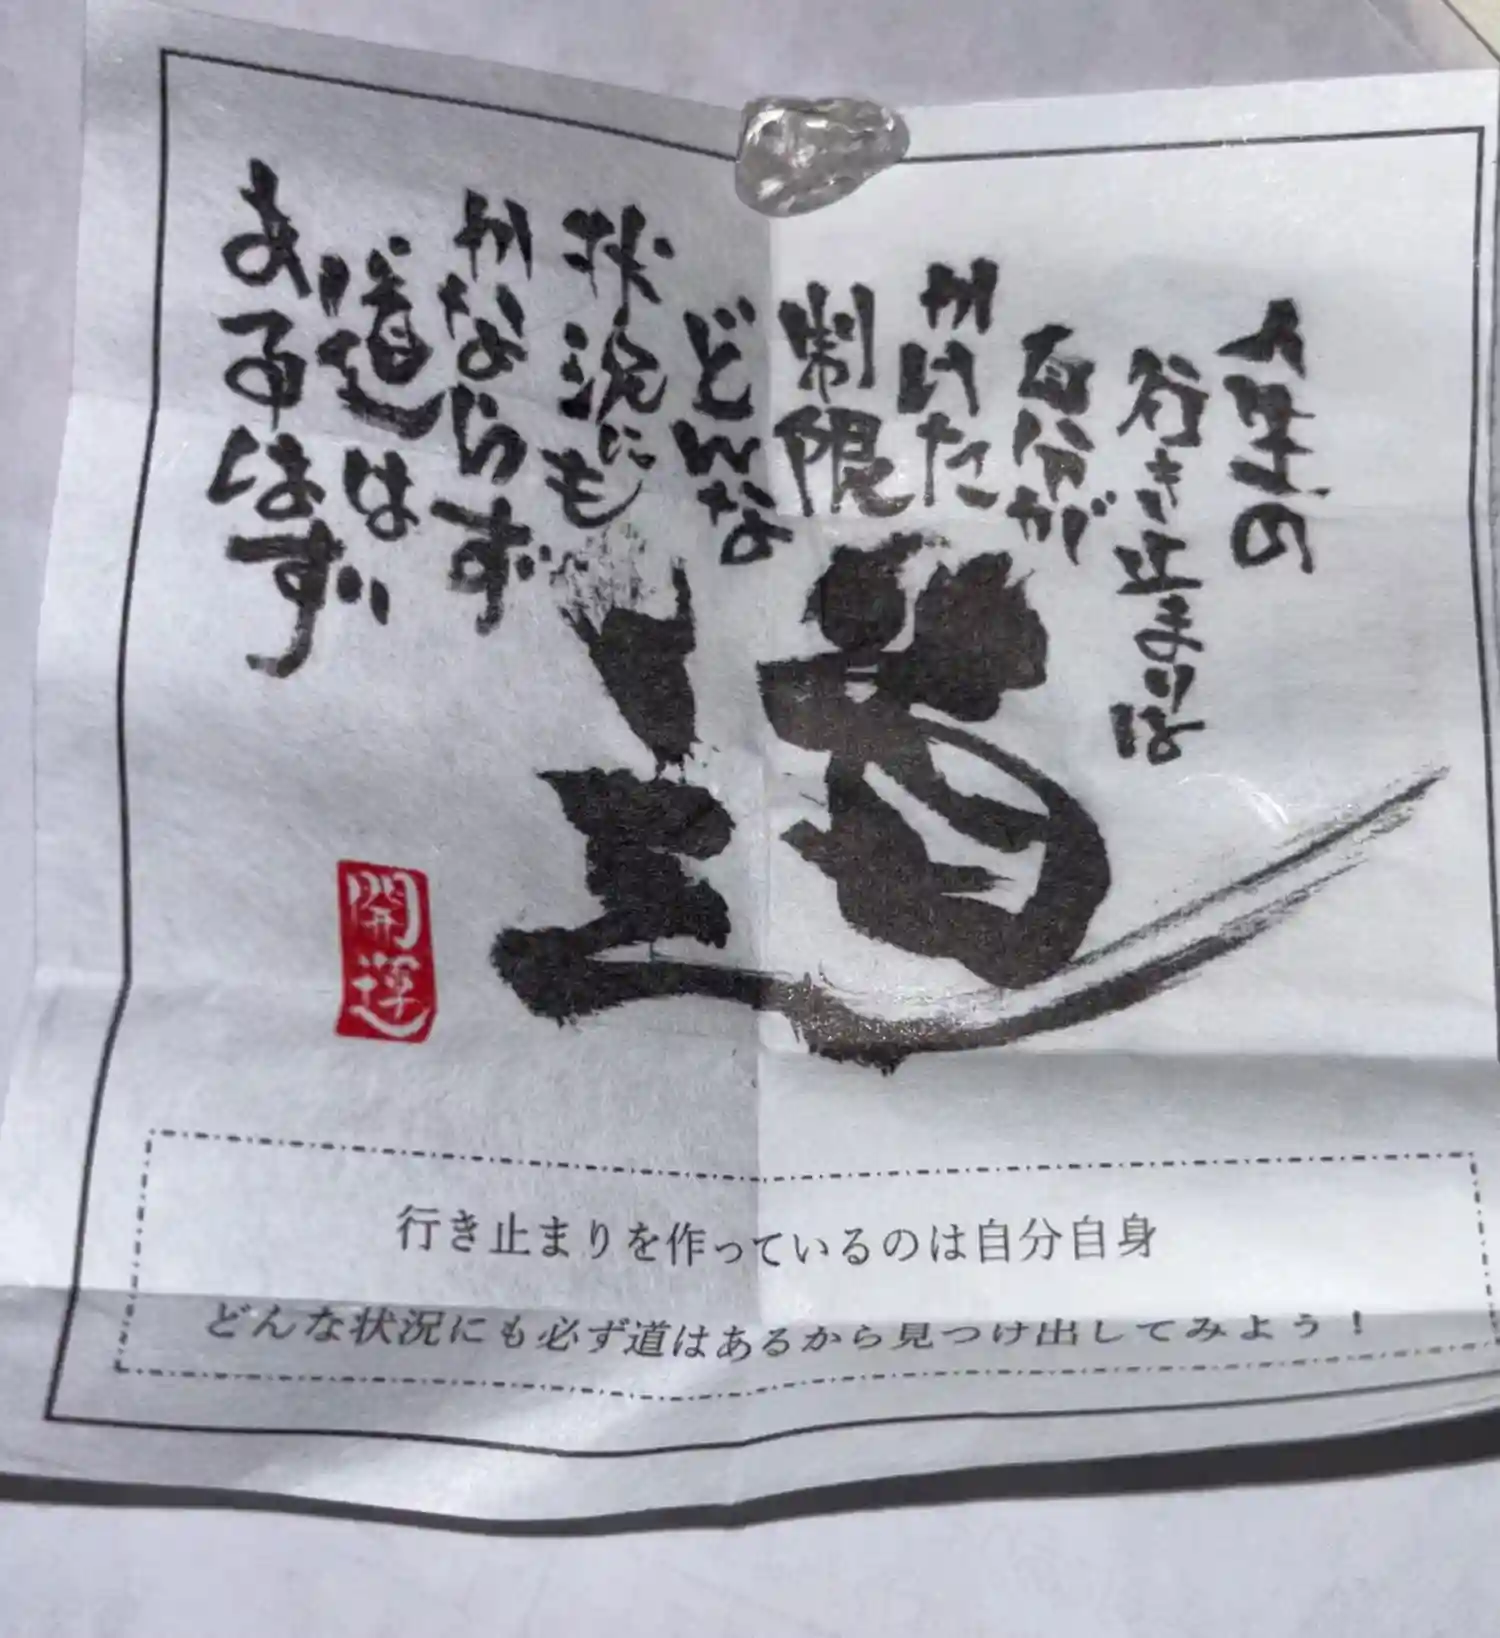 人生の
行き止まりは
自分が
かけた
制限
どんな
状況にも
かならず
道は
あるはず
道
開運
行き止まりを作っているのは自分自身
どんな状況にも必ず道はあるから見つけ出してみよう！